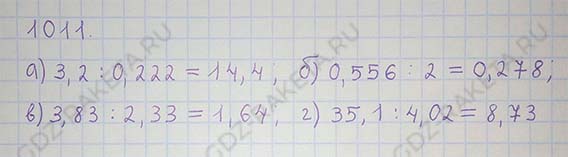 1011.
а) 3,2 : 0,222 = 14,4; б) 0,556 : 2 = 0,278;
в) 3,83 : 2,33 = 1,64; г) 35,1 : 4,02 = 8,73
GDZ-RAKETA.RU